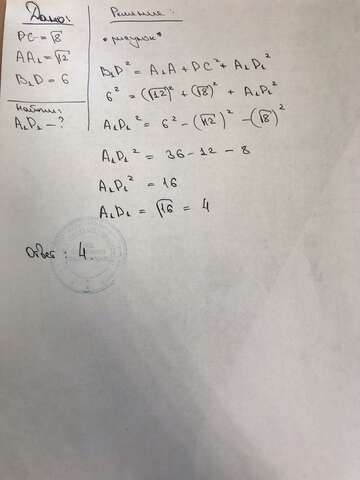 Дано:
DC = √8
AA₁ = √12
B₁D = 6
Найти:
A₁D₁ - ?
Решение:
*рисунок*
B₁D² = A₁A + DC² + A₁D₁²
6² = (√12)² + (√8)² + A₁D₁²
A₁D₁² = 6² - (√12)² - (√8)²
A₁D₁² = 36 - 12 - 8
A₁D₁² = 16
A₁D₁ = √16 = 4
Ответ: 4.